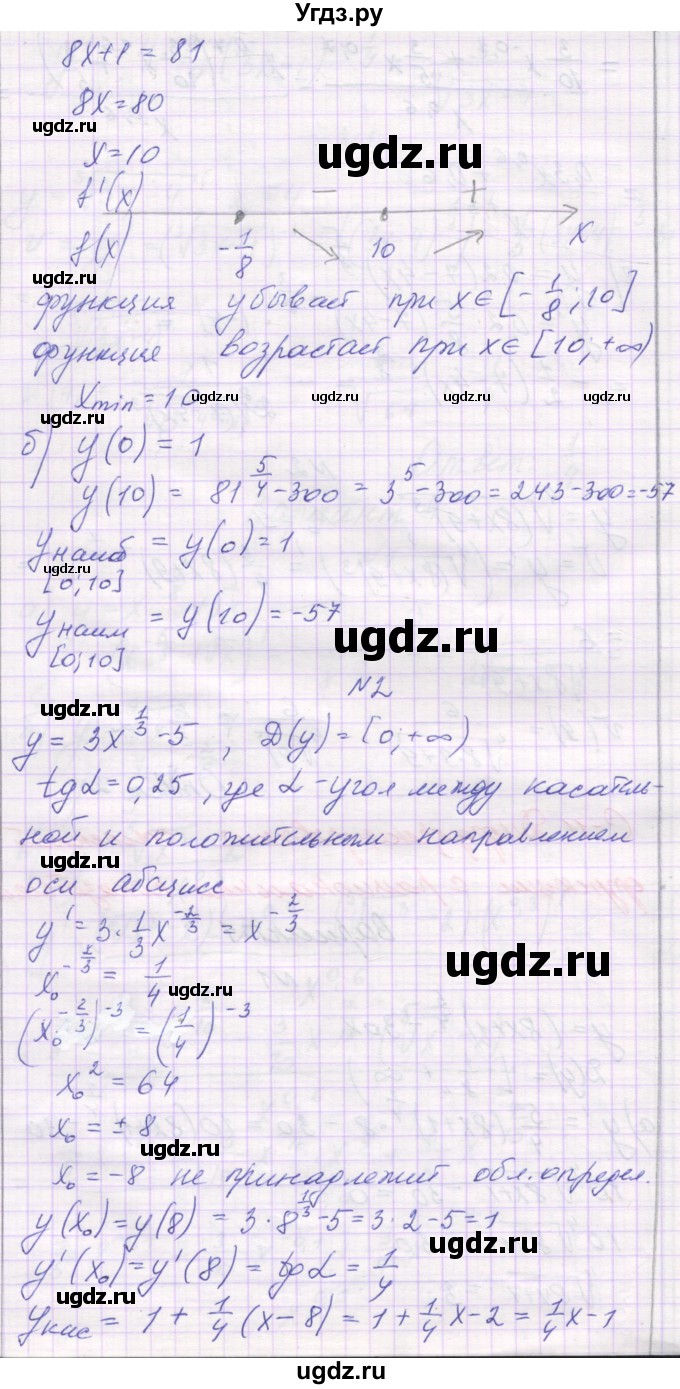 Угдз.ру
8x+1 = 81
8x=80
ugdz.ru
ugdz.ru
x=10
f'(x) − +
f(x) -1/8 10 x
ugdz.ru
функция убывает при x∈[-1/8;10]
функция возрастает при x∈[10,+∞)
xmin=10
ugdz.ru ugdz.ru ugdz.ru
б) y(0)=1
y(10) = 81^(5/4)-300 = 3^5-300=243-300=-57
yнаиб = y(0)=1
[0;10] ugdz.ru
yнаим = y(10)=-57
[0;10]
ugdz.ru
N2
ugdz.ru
y= 3x^(1/3)-5 , D(y)=[0,+∞)
tgα=0,25, где α-угол между касатель-
ной и положительным направлением
ugdz.ru
оси абсцисс
y'=3·1/3x^(-2/3)=x^(-2/3)
ugdz.ru
x₀^(-2/3)=1/4
ugdz.ru
(x₀^(-2/3))^(-3)=(1/4)^(-3)
x₀²=64
x₀=±8
ugdz.ru
x₀=-8 не принадлежит обл.определ.
y(x₀)=y(8)=3·8^(1/3)-5=3·2-5=1
ugdz.ru
y'(x₀)=y'(8)=tgα=1/4
ugdz.ru
yкас= 1+1/4(x-8)=1+1/4x-2=1/4x-1
ugdz.ru